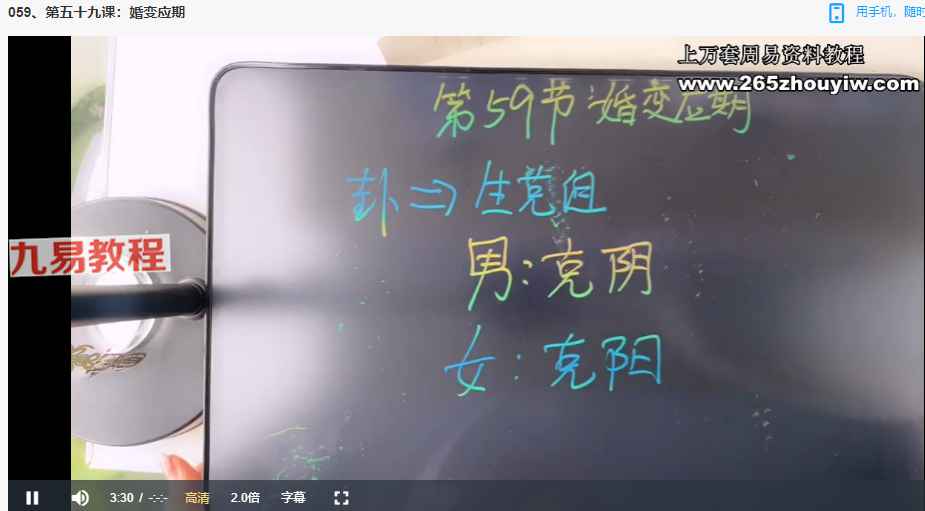 059、第五十九课：婚变应期
用手机，随时
上万套周易资料教程
www.265zhouyiw.com
第59节:婚变应期
卦⇒生克组
九易教程
男:克阴
女:克阳
3:30 / -:-:- 高清 2.0倍 字幕